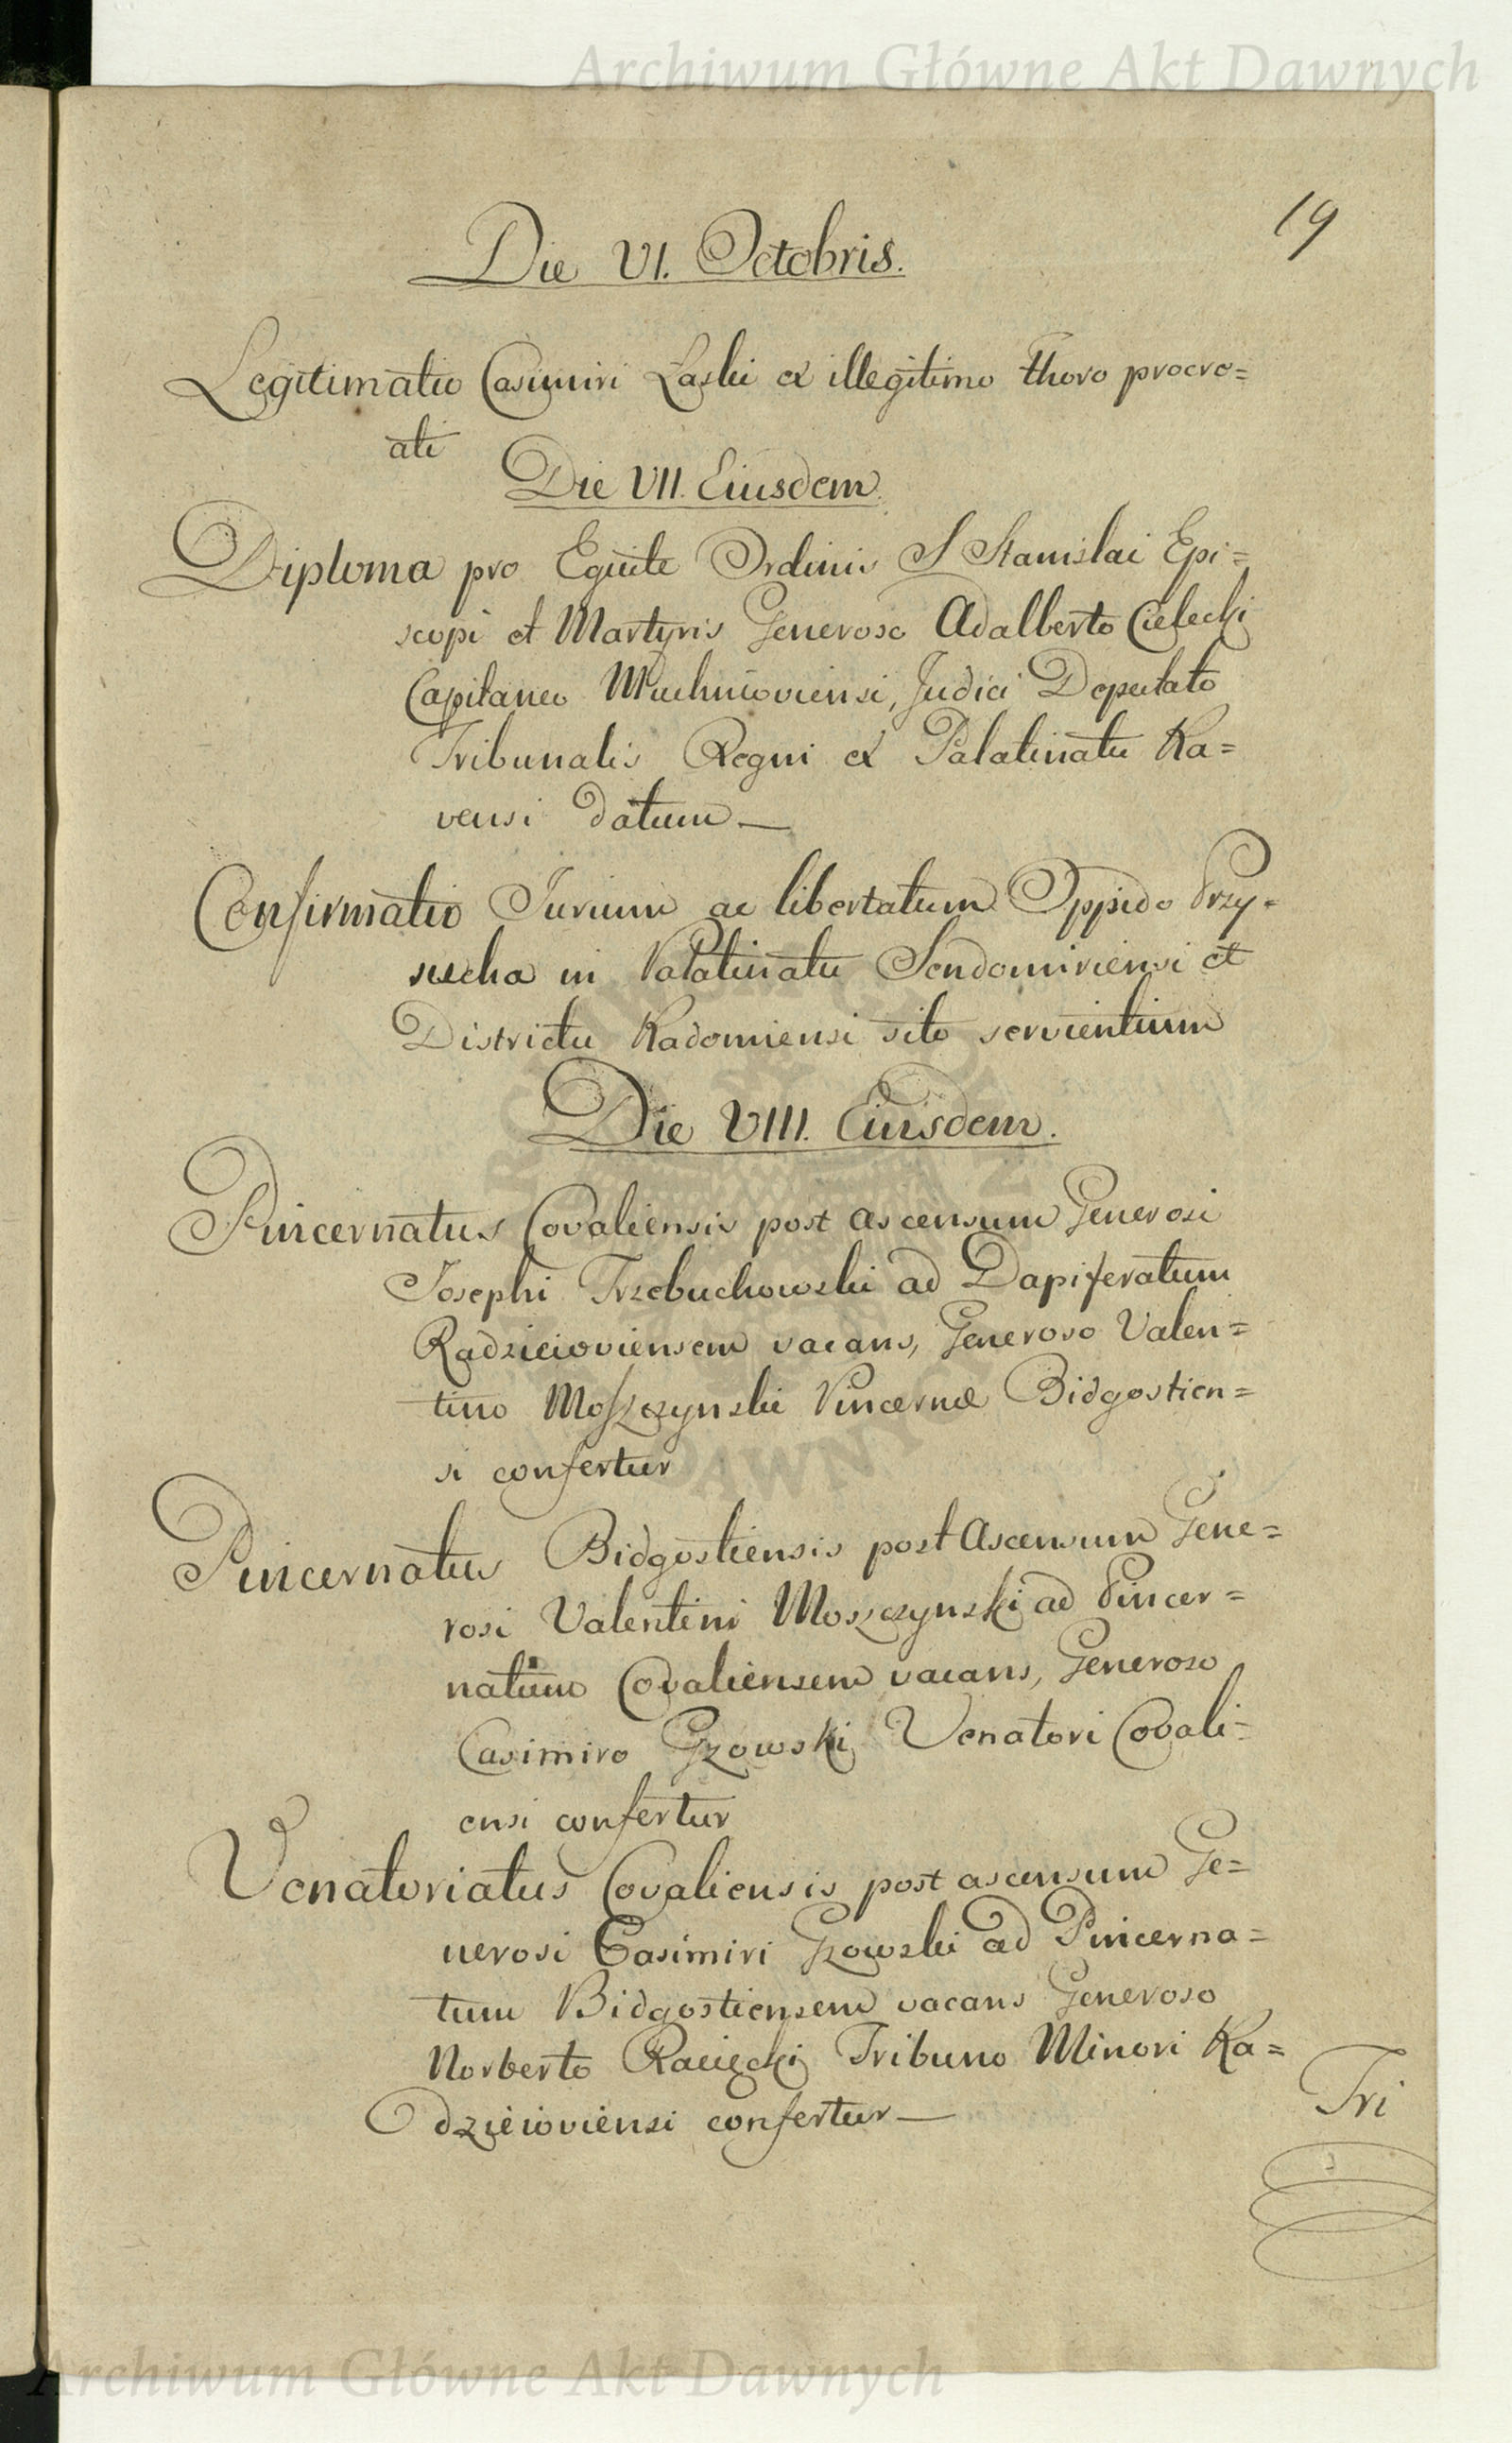 Archiwum Główne Akt Dawnych
19
Die VI. Octobris.
Legitimatio Casimiri Łaski ex illegitimo thoro procre=
ati
Die VII. Eiusdem
Diploma pro Equite Ordinis S Stanislai Epi=
scopi et Martyris Generoso Adalberto Cielecki
Capitaneo Judici Deputato
Tribunalis Regni ex Palatinatu Ra=
vensi datum —
Confirmatio Jurium ac libertatum Oppido Przy=
sucha in Palatinatu Sendomiriensi et
Districtu Radomiensi sito servientium
Die VIII. Eiusdem.
Pincernatus Covaliensis post ascensum Generosi
Josephi Trzebuchowski ad Dapiferatum
Radzieioviensem vacans, Generoso Valen=
tino Moszczynski Pincernæ Bidgostien=
si confertur
Pincernatus Bidgostiensis post Ascensum Gene=
rosi Valentini Moszczynski ad Pincer=
natum Covaliensem vacans, Generoso
Casimiro Gzowski Venatori Covali=
ensi confertur
Venatoriatus Covaliensis post ascensum Ge=
nerosi Casimiri Gzowski ad Pincerna=
tum Bidgostiensem vacans Generoso
Norberto Racięcki Tribuno Minori Ra=
dzieioviensi confertur —
Tri
Archiwum Główne Akt Dawnych